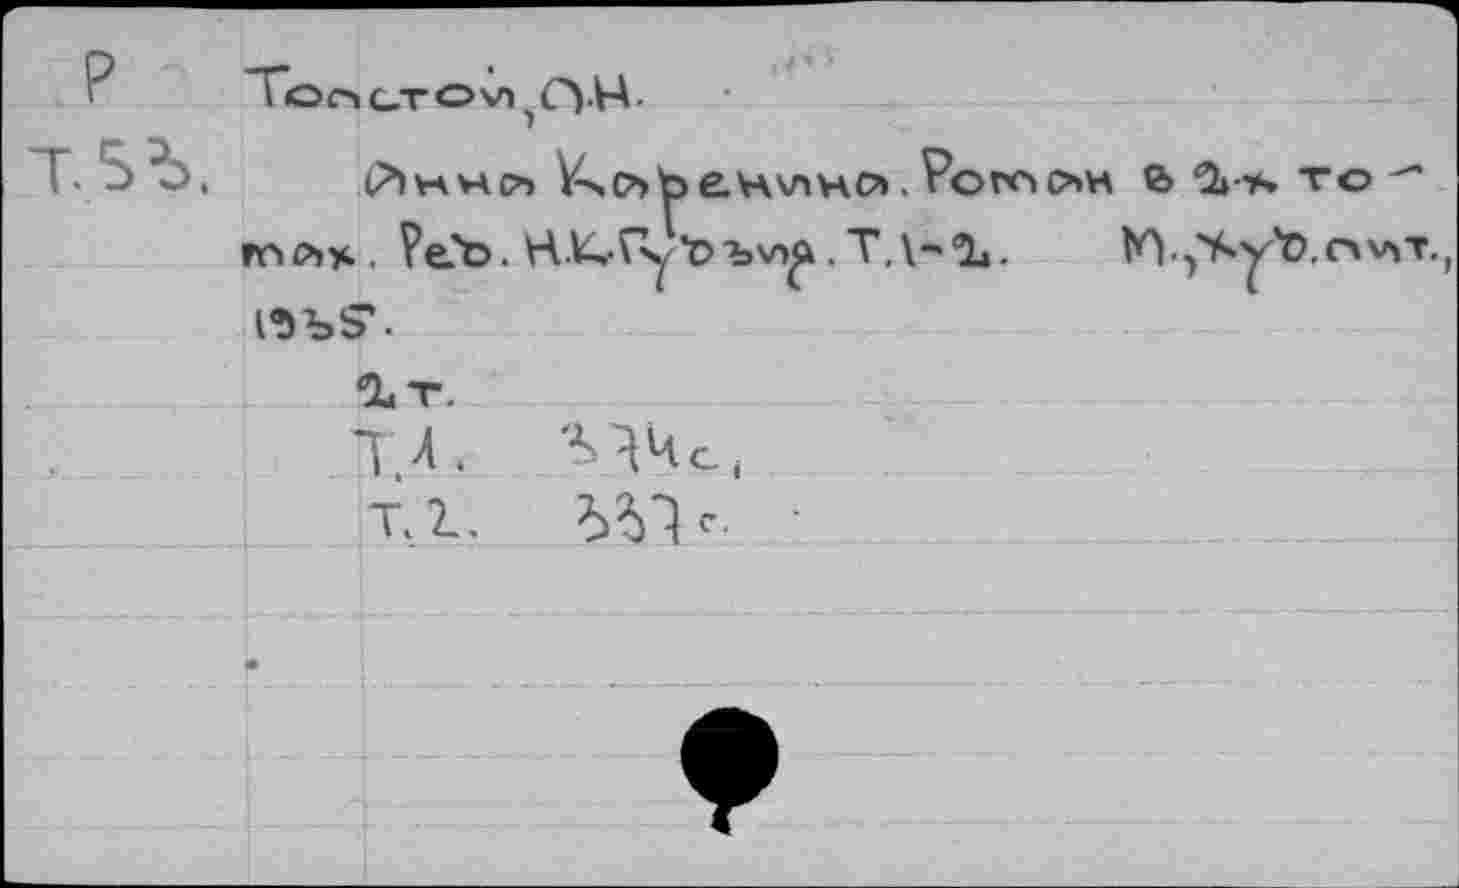 Р Толстой, Л.Н.
Т.53. Анна Каренина. Роман в 2-х то-
мах. Ред. Н.К.Гудзия. Т.1-2. М., Худ.лит.,
1935.
2 т.
Т.1. 374 с,
Т.2. 337 с.